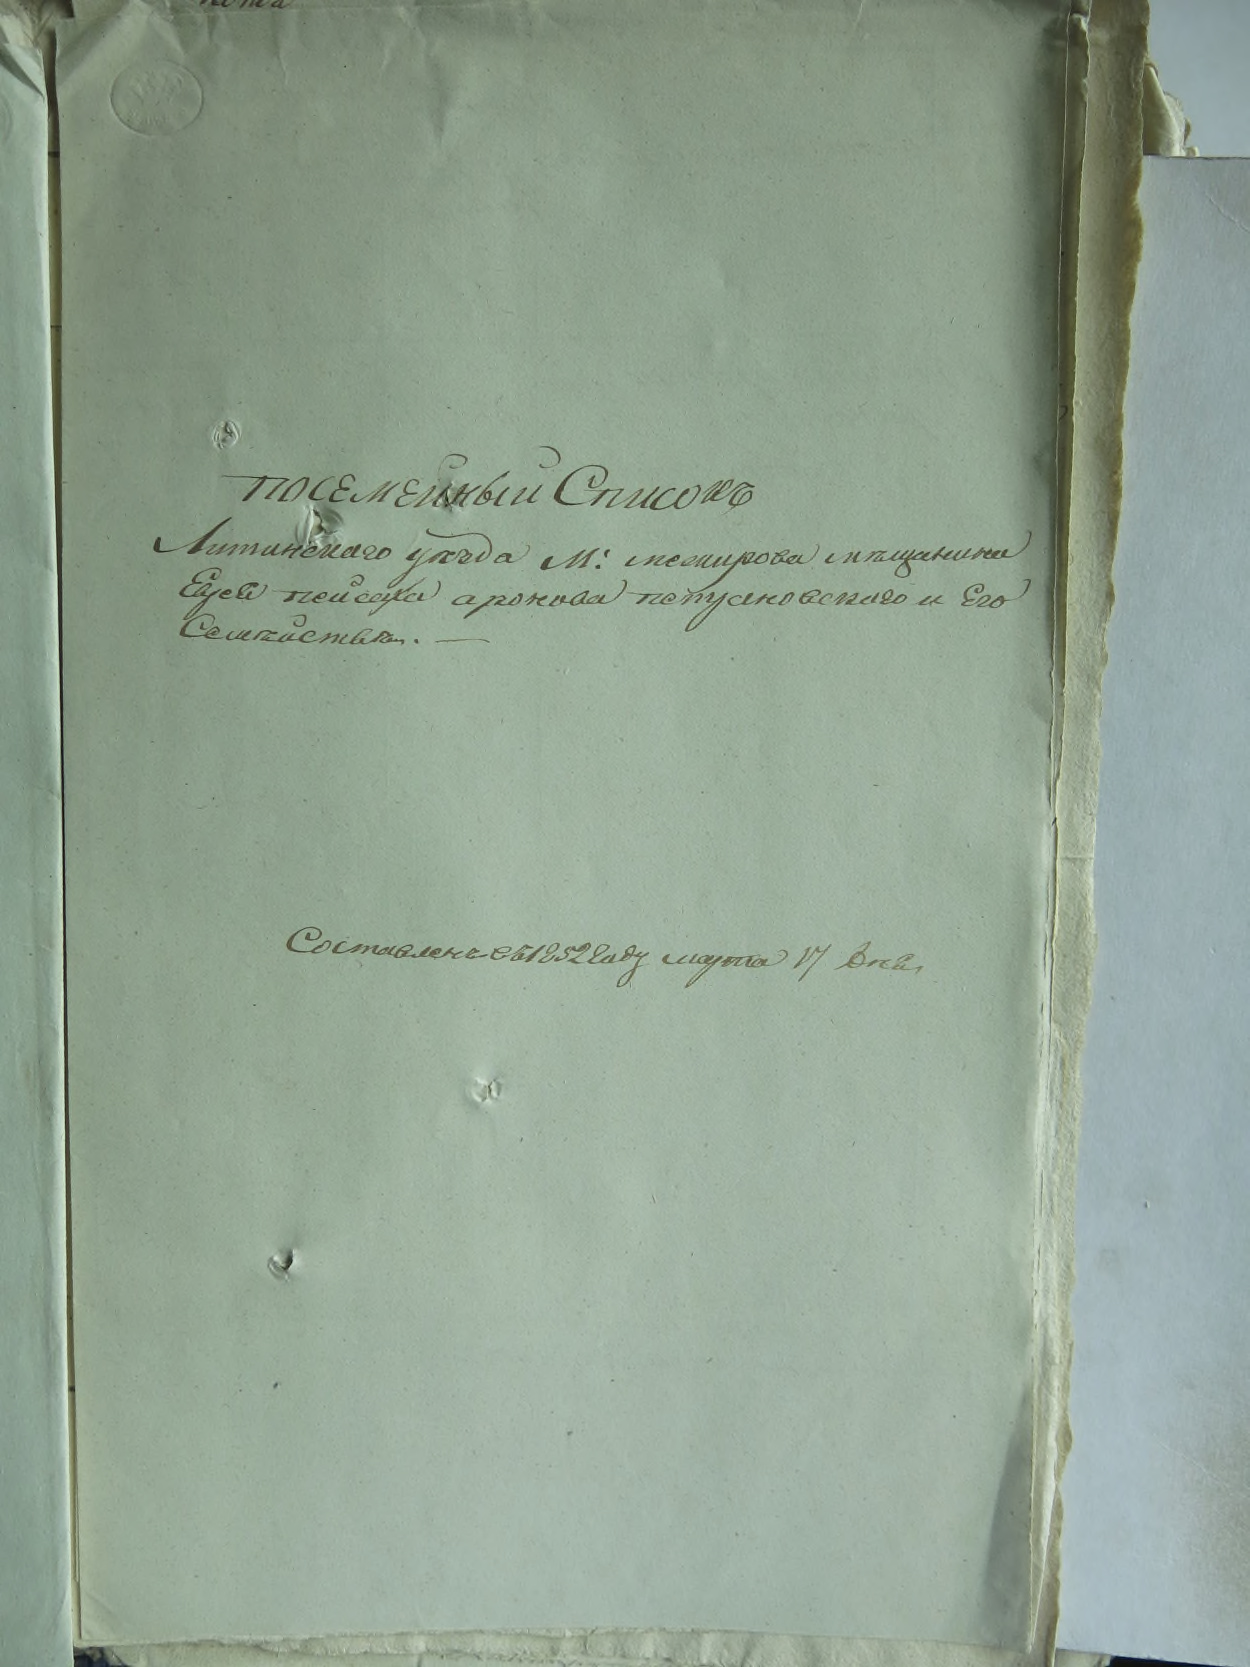 Посемейный Список
Литинского уезда М: межирова мещанина
Еврея пейсаха аронова петрановского и Его
Семейства. —
Составленъ въ 1852 году марта 17 дня,